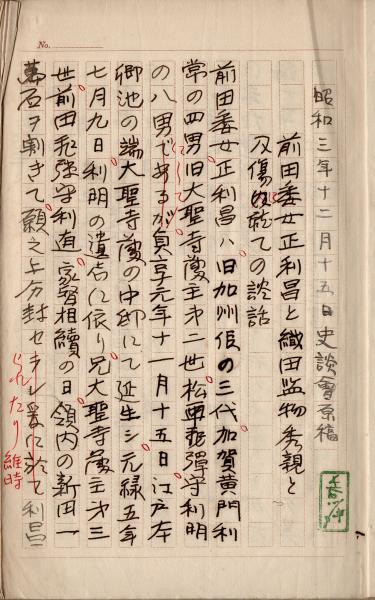 No.
昭和三年十二月十五日史談會原稿
前田采女正利昌と織田監物秀親と
刃傷に就ての談話
前田采女正利昌ハ旧加州侯の三代加賀黄門利
常の四男旧大聖寺藩主第二世松平飛彈守利明
の八男であるが貞享元年十一月十五日江戸本
郷池の端大聖寺藩の中邸にて延生シ元緑五年
七月九日利明の遺志に依り兄大聖寺藩主第三
世前田飛弾守利直家督相續の日領内の新田一
萬石ヲ割きて願之上分封セラレ爰に於て利昌
られたり維時